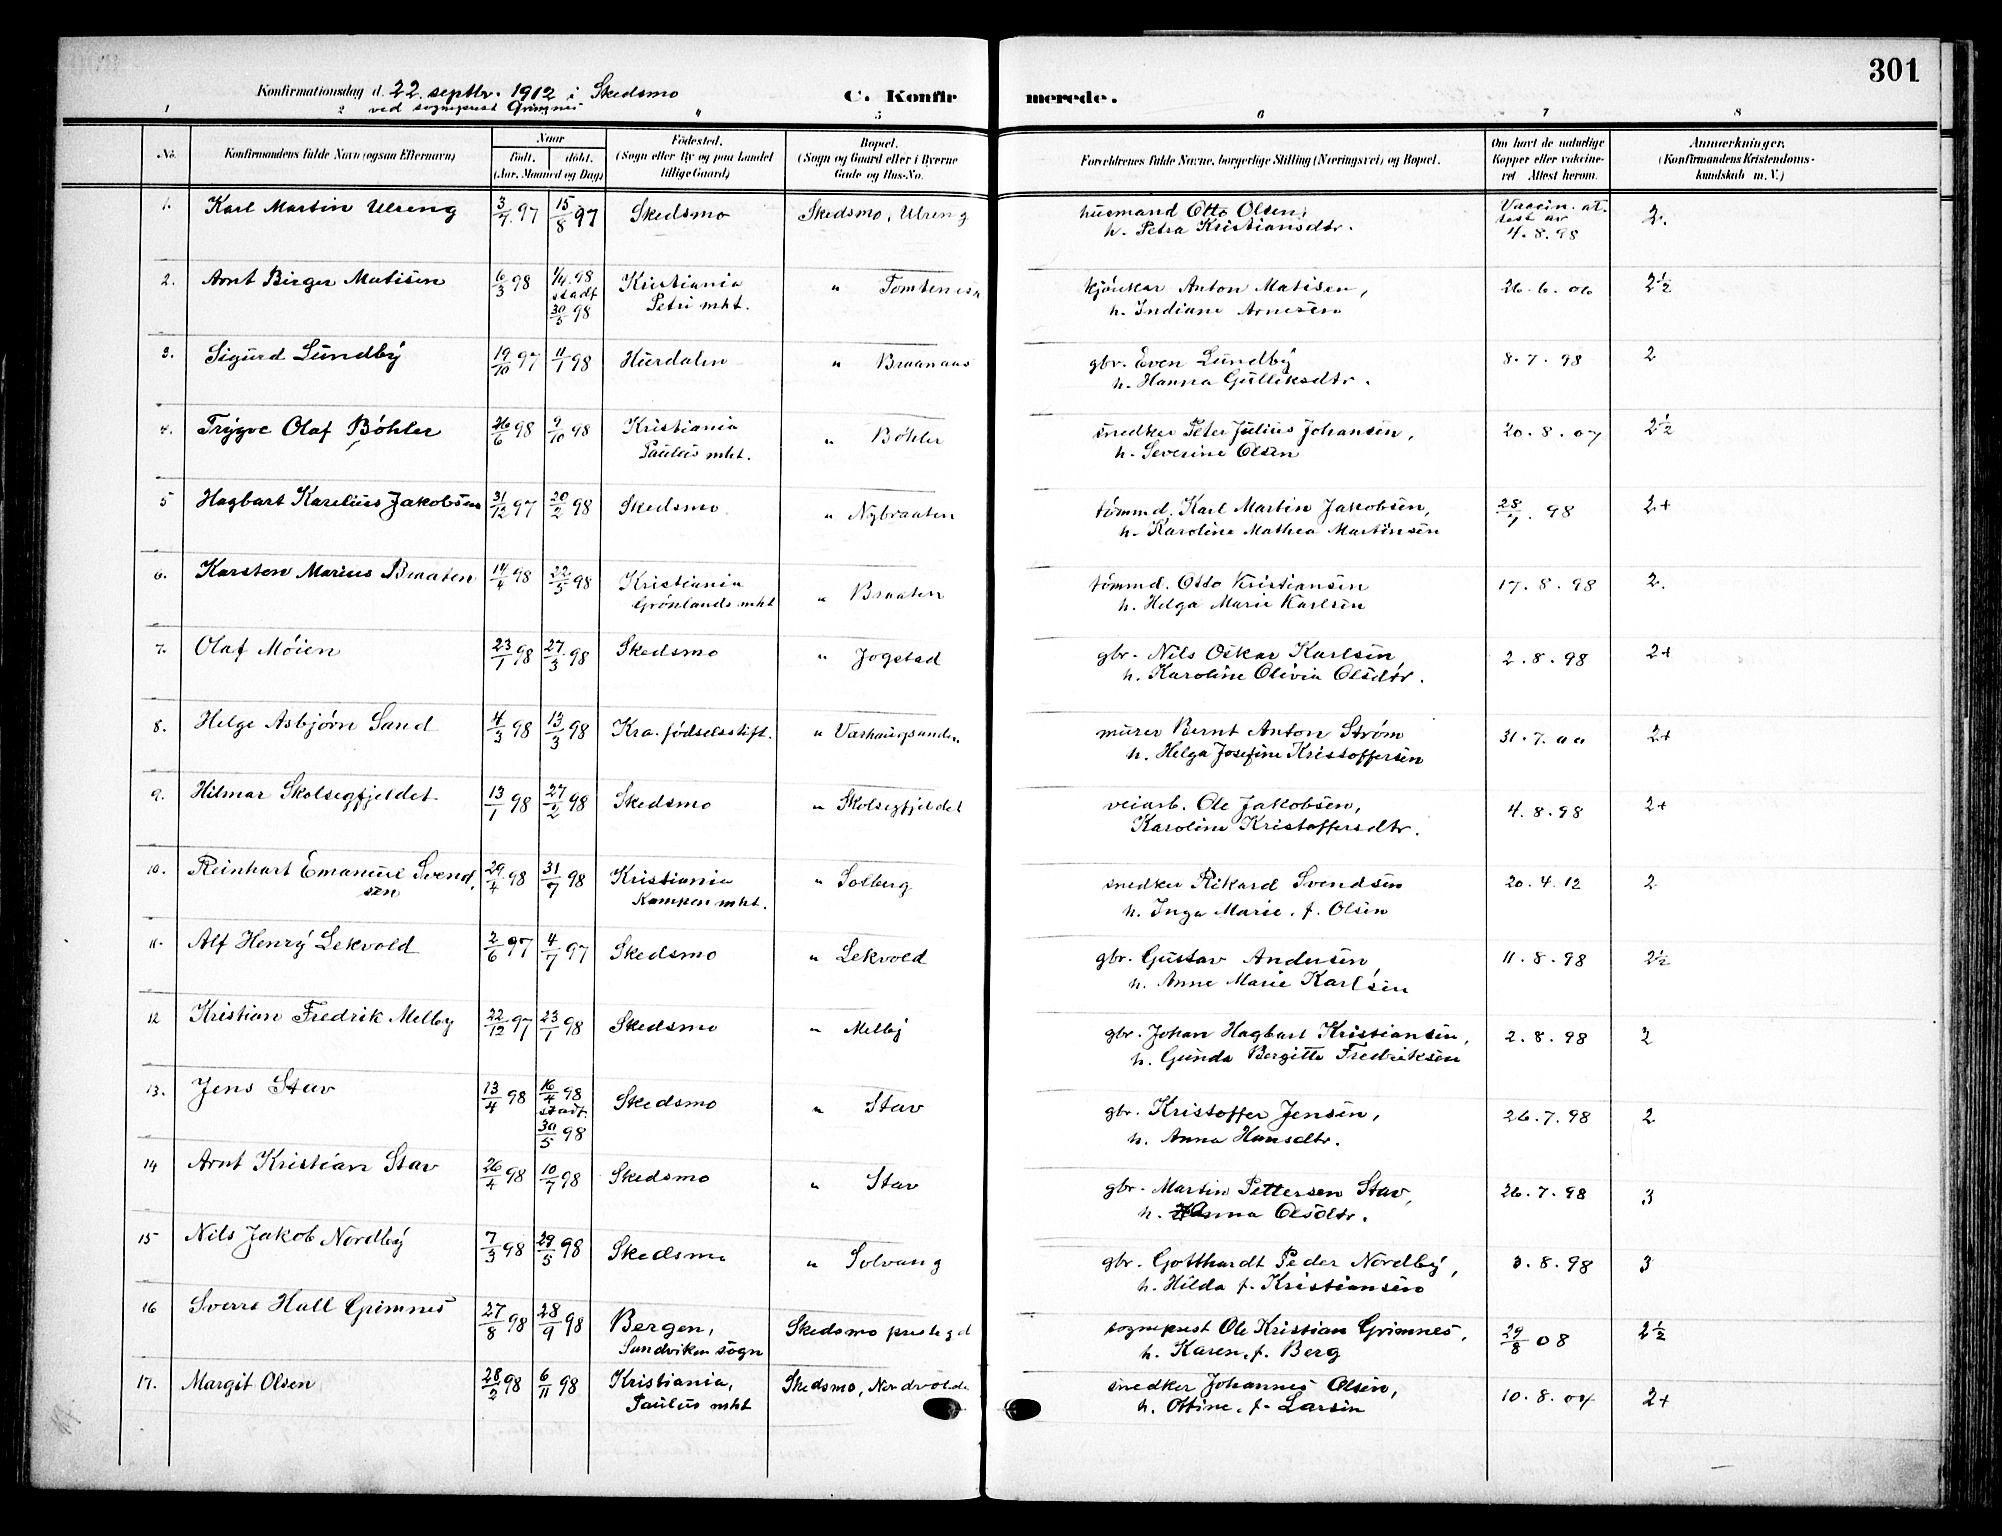 301
Konfirmationsdag d. 22. septbr. 1912 i Skedsmo
ved sogneprest Grimnes
C. Konfirmerede.
1 2 4 5 6 7 8
No. Konfirmandens fulde Navn (ogsaa Efternavn) Naar født. døbt. (Aar, Maaned og Dag) Fødested. (Sogn eller By og paa Landet tillige Gaard) Bopæl. (Sogn og Gaard eller i Byerne Gade og Hus-No. Forældrenes fulde Navne, borgerlige Stilling (Næringsvei) og Bopæl. Om havt de naturlige Kopper eller vaccineret Attest herom. Anmærkninger. (Konfirmandens Kristendomskundskab m. V.)
1. Karl Martin Ulreng 3/7 97 15/8 97 Skedsmo Skedsmo, Ulreng husmand Otto Olsen, Vaccin. at- 2.
h. Petra Kristiansdtr. test av
4.8.98
2. Arnt Birger Matisen 6/3 98 1/4 98 Kristiania " kjørekar Anton Matisen, 26.6.06 2½
stadf Petri mht. h. Indiane Arnesen
30/5 98
3. Sigurd Lundby 19/10 97 11/1 98 Hurdalen " Braanaas gbr. Even Lundby 8.7.98 2
h. Hanna Gulliksdtr.
4. Trygve Olaf Bøhler 26/6 98 9/10 98 Kristiania " Bøhler snedker Peter Julius Johansen, 20.8.07 2½
Paulus mht. h. Severine Olsen
5 Hagbart Karelius Jakobsen 31/12 97 20/2 98 Skedsmo " Nybraaten tømmd. Karl Martin Jakobsen, 28/7. 98 2+
h. Karoline Mathea Martinsen
6. Karsten Marius Braaten 14/4 98 22/5 98 Kristiania " Braaten tømmd. Otto Kristiansen 17.8.98 2.
Grønlands mht h. Helga Marie Karlsen
7. Olaf Moien 23/1 98 27/3 98 Skedsmo " Jogstad gbr. Nils Oskar Karlsen 2.8.98 2+
h. Karoline Olivia Olsdtr.
8. Helge Asbjørn Sand 4/3 98 13/3 98 Kra. fødselsstift. " murer Bernt Anton Strøm 31.7.00 2+
h. Helga Josefine Kristoffersen
9. Hilmar Skolsegfjeldet 13/1 98 27/2 98 Skedsmo " Skolsegfjeldet veiarb. Ole Jakobsen, 4.8.98 2+
Karoline Kristoffersdtr.
10. Reinhart Emanuel Svend- 29/4 98 31/7 98 Kristiania " Solberg snedker Rikard Svendsen 20.4.12 2
sen Kampen mht. h. Inga Marie, f. Olsen
11. Alf Henry Lekvold 2/6 97 4/7 97 Skedsmo " Lekvold gbr. Gustav Andersen, 11.8.98 2½
h. Anne Marie Karlsen
12 Kristian Fredrik Melby 22/12 97 23/1 98 Skedsmo " Melby gbr. Johan Hagbart Kristiansen, 2.8.98 2
h. Gunda Bergitte Fredriksen
13. Jens Stav 13/4 98 16/4 98 Skedsmo " Stav gbr. Kristoffer Jensen, 26.7.98 2
stadf. h. Anna Hansdtr.
30/5 98
14 Arnt Kristian Stav 26/4 98 10/7 98 Skedsmo " Stav gbr. Martin Pettersen Stav, 26.7.98 3
h. Anna Olsdtr.
15 Nils Jakob Nordby 7/3 98 29/5 98 Skedsmo " Solvang gbr. Gotthardt Peder Nordby, 3.8.98 3
h. Hilda f. Kristiansen
16 Sverre Hall Grimnes 27/8 98 28/9 98 Bergen, Skedsmo prestegd sogneprest Ole Kristian Grimnes, 29/8 08 2½
Sandviken sogn h. Karen, f. Berg
17. Margit Olsen 28/2 98 6/11 98 Kristiania, Skedsmo, snedker Johannes Olsen, 10.8.04 2+
Paulus mht h. Ottine, f. Larsen